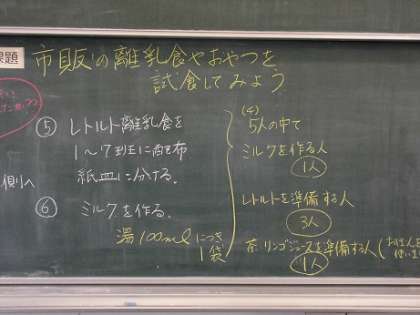 課題
市販の離乳食やおやつを
試食してみよう
⑤ レトルト離乳食を
1〜7班に配布
紙皿に分ける。
側りへ
⑥ ミルクを作る。
湯100mlにつき
1袋
(4)
5人の中で
ミルクを作る人
1人
レトルトを準備する人
3人
茶 リンゴジュースを準備する人(
1人